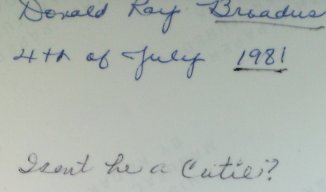 Donald Ray Broadus
4th of July 1981
Isent he a Cutie?